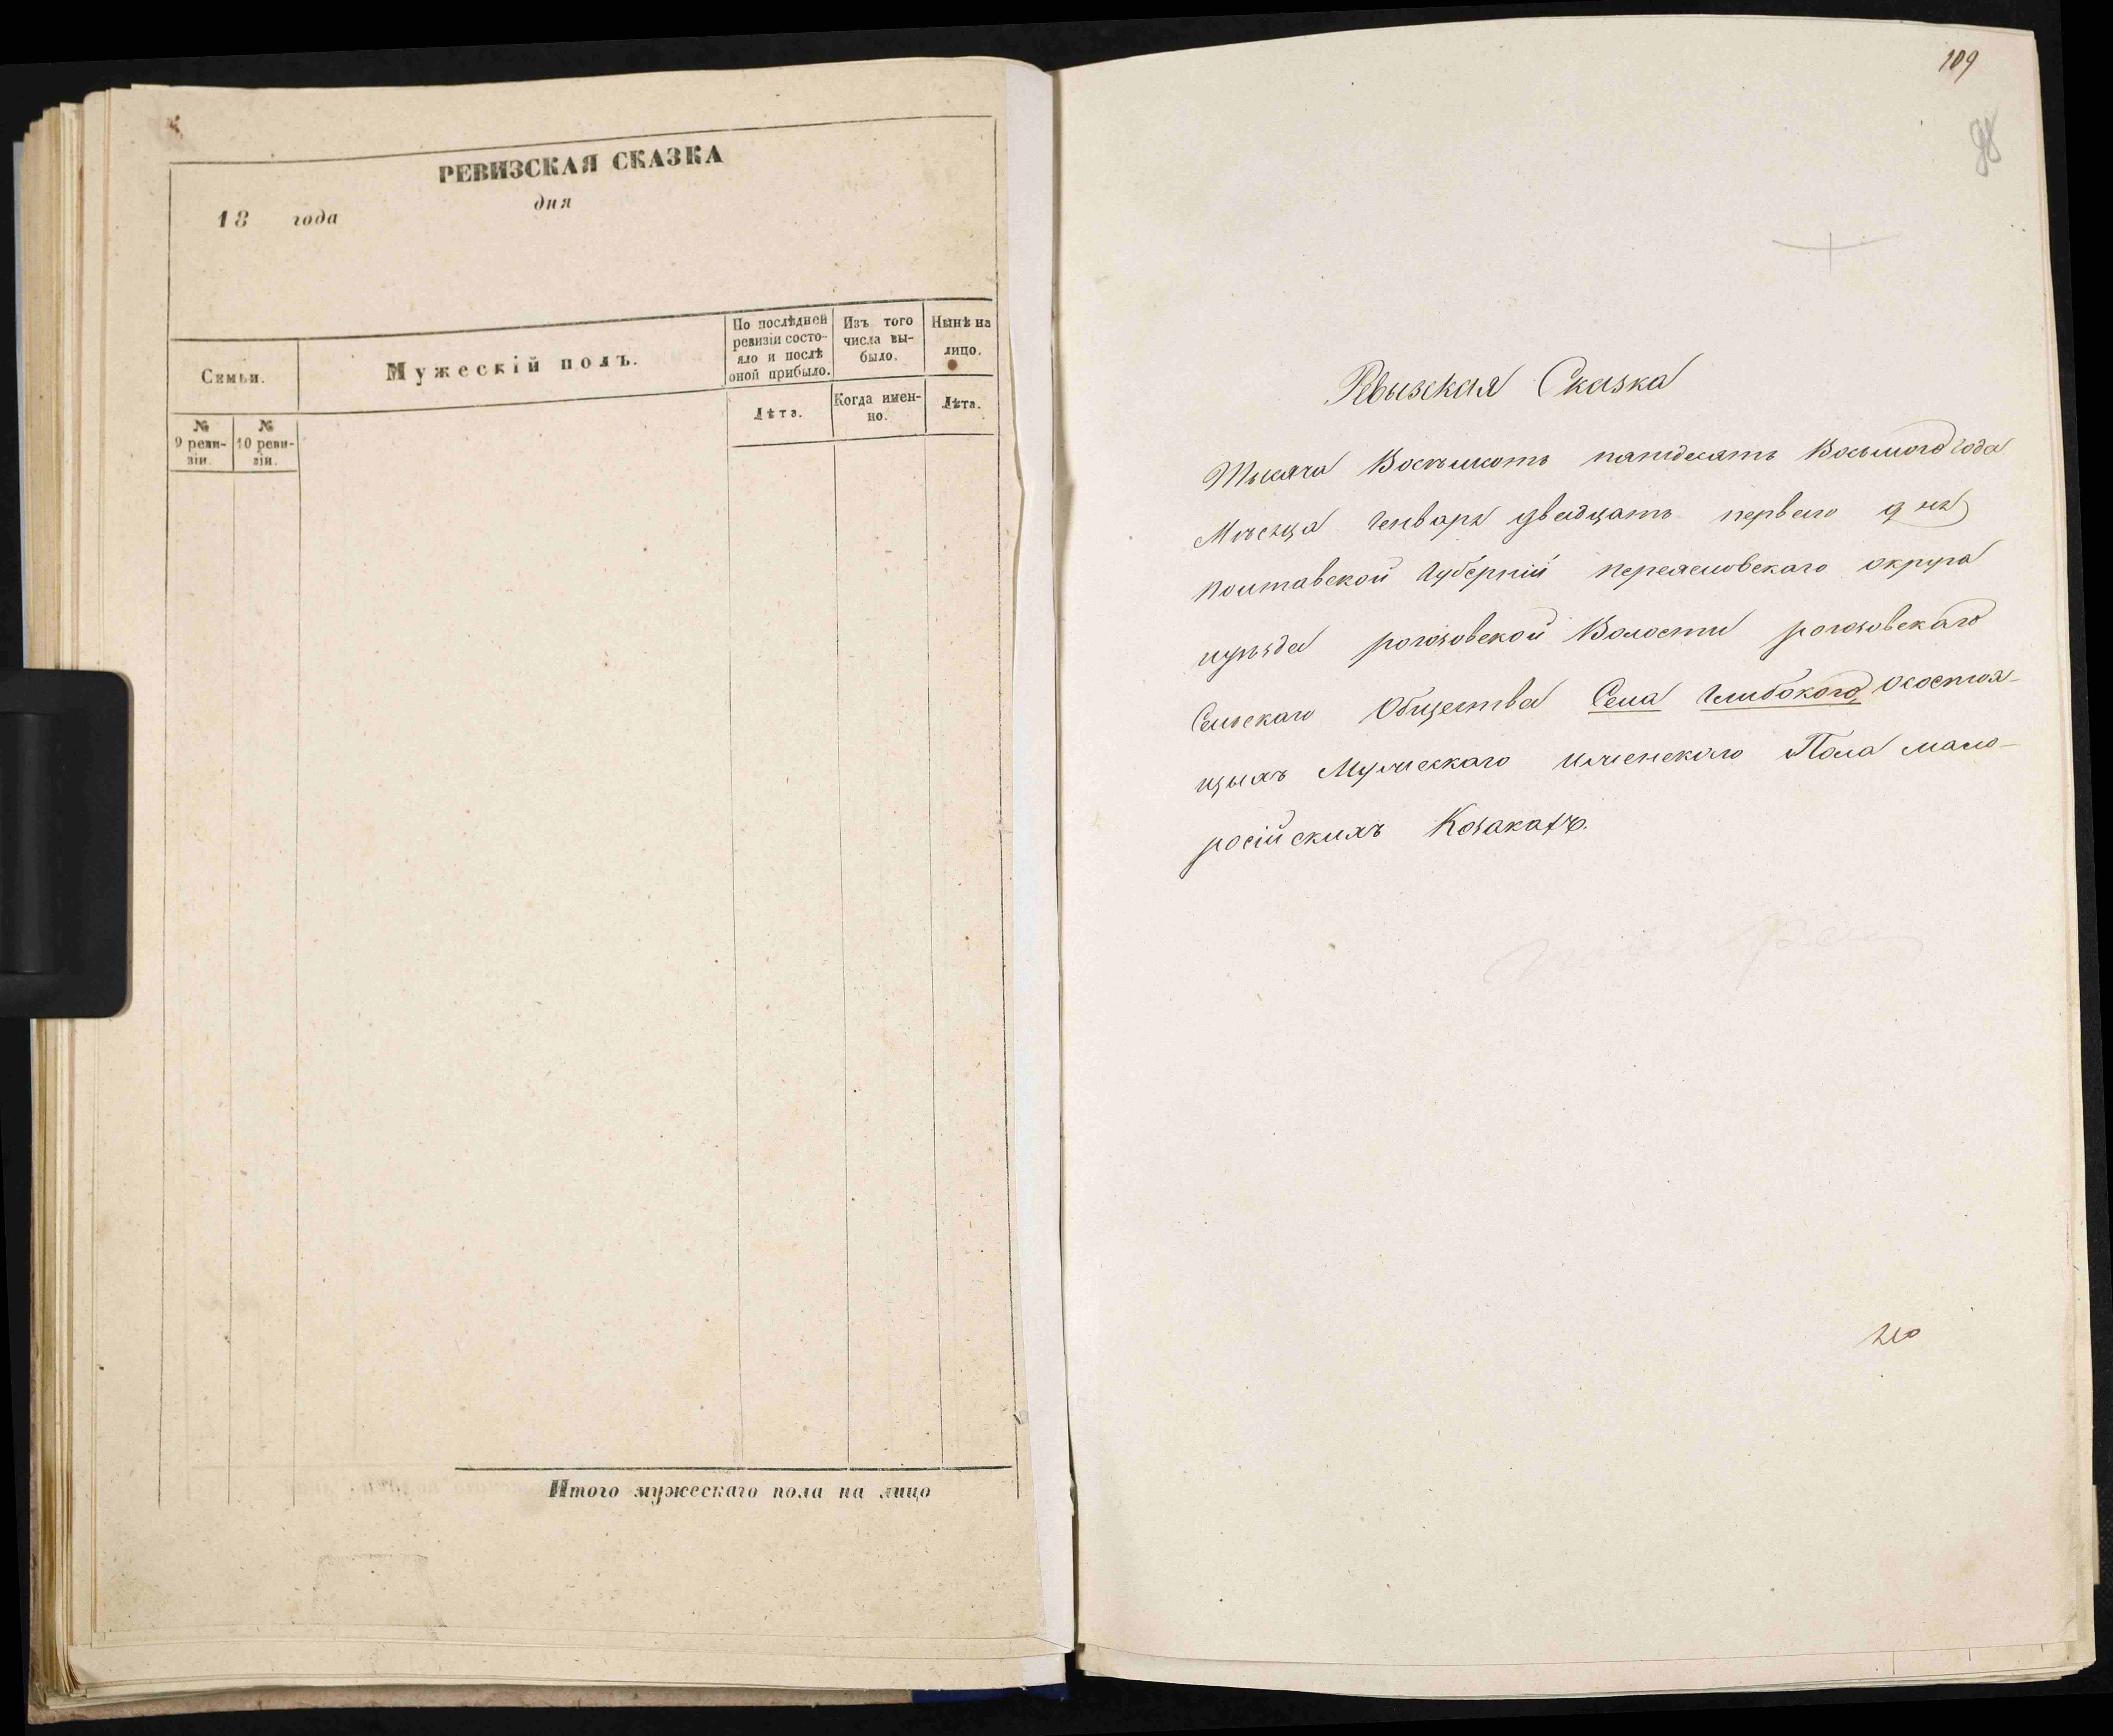 РЕВИЗСКАЯ СКАЗКА
18 года дня
Семьи.
Мужескій полъ.
По послѣдней
ревизіи состо-
яло и послѣ
оной прибыло.
Изъ того
числа вы-
было.
Нынѣ на
лицо.
№
9 реви-
зіи.
№
10 реви-
зіи.
Лѣта.
Когда имен-
но.
Лѣта.
Итого мужескаго пола на лицо
109
98
Ревызская Сказка
Тысяча Восѣмсотъ пятдесятъ Восьмого года
Мѣсяца Генваря двадцать первого дня
полтавской Губерніи переяслов̾скаго округа
уѣзда рогозовской Волости рогозовскаго
Сельскаго Общества Села Глибокого, Осостоя-
щыхъ Мужескаго иженскаго Пола мало-
російскихъ Козакахъ.